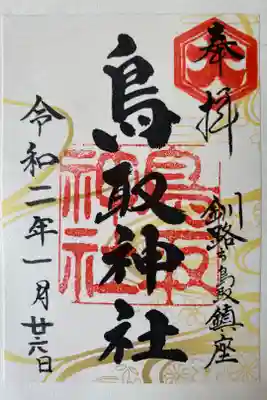 奉拝
釧路市鳥取鎮座
鳥取神社
鳥取神社
令和二年一月廿六日